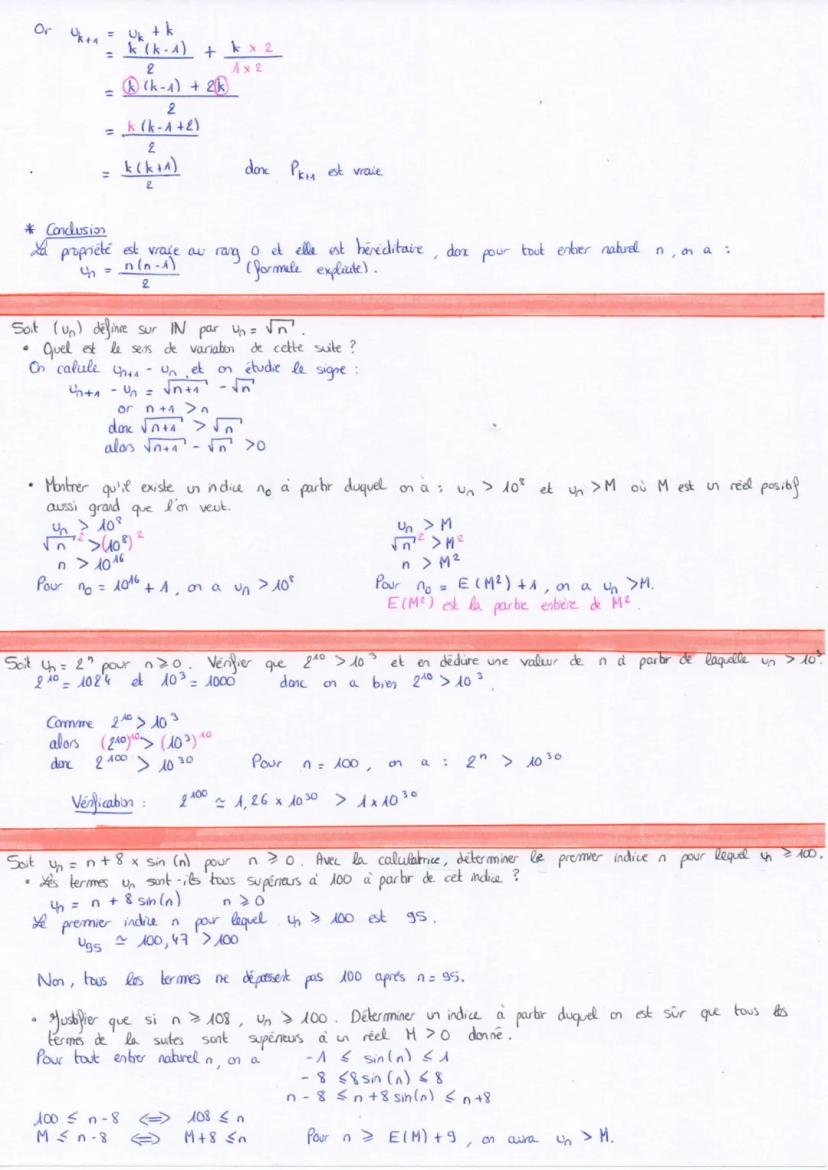 Or u_{k+1} = u_k + k
= \frac{k(k-1)}{2} + \frac{k × 2}{1 × 2}
= \frac{k(k-1) + 2k}{2}
= \frac{k(k-1+2)}{2}
= \frac{k(k+1)}{2} donc P_{k+1} est vraie
* Conclusion
La propriété est vraie au rang 0 et elle est héréditaire, donc pour tout entier naturel n, on a :
u_n = \frac{n(n-1)}{2} (formule explicite).
Soit (u_n) définie sur IN par u_n = √n.
• Quel est le sens de variation de cette suite ?
On calcule u_{n+1} - u_n et on étudie le signe :
u_{n+1} - u_n = √(n+1) - √n
or n+1 > n
donc √(n+1) > √n
alors √(n+1) - √n > 0
• Montrer qu'il existe un indice n_0 à partir duquel on a : u_n > 10^8 et u_n > M où M est un réel positif
aussi grand que l'on veut.
u_n > 10^8
√n^2 > (10^8)^2
n > 10^{16}
Pour n_0 = 10^{16} + 1, on a u_n > 10^8
u_n > M
√n^2 > M^2
n > M^2
Pour n_0 = E(M^2) + 1, on a u_n > M.
E(M^2) est la partie entière de M^2.
Soit u_n = 2^n pour n ⩾ 0. Vérifier que 2^{10} > 10^3 et en déduire une valeur de n à partir de laquelle u_n > 10^3.
2^{10} = 1024 et 10^3 = 1000 donc on a bien 2^{10} > 10^3.
Comme 2^{10} > 10^3
alors (2^{10})^{10} > (10^3)^{10}
donc 2^{100} > 10^{30} Pour n = 100, on a : 2^n > 10^{30}
Vérification : 2^{100} ≃ 1,26 × 10^{30} > 1 × 10^{30}
Soit u_n = n + 8 × sin(n) pour n ⩾ 0. Avec la calculatrice, déterminer le premier indice n pour lequel u_n ⩾ 100.
• Les termes u_n sont-ils tous supérieurs à 100 à partir de cet indice ?
u_n = n + 8 sin(n) n ⩾ 0
Le premier indice n pour lequel u_n ⩾ 100 est 95.
u_{95} ≃ 100,47 > 100
Non, tous les termes ne dépassent pas 100 après n = 95.
• Justifier que si n ⩾ 108, u_n ⩾ 100. Déterminer un indice à partir duquel on est sûr que tous les
termes de la suites sont supérieurs à un réel M > 0 donné.
Pour tout entier naturel n, on a -1 ⩽ sin(n) ⩽ 1
-8 ⩽ 8 sin(n) ⩽ 8
n - 8 ⩽ n + 8 sin(n) ⩽ n + 8
100 ⩽ n - 8 ⟺ 108 ⩽ n
M ⩽ n - 8 ⟺ M + 8 ⩽ n Pour n ⩾ E(M) + 9, on aura u_n > M.